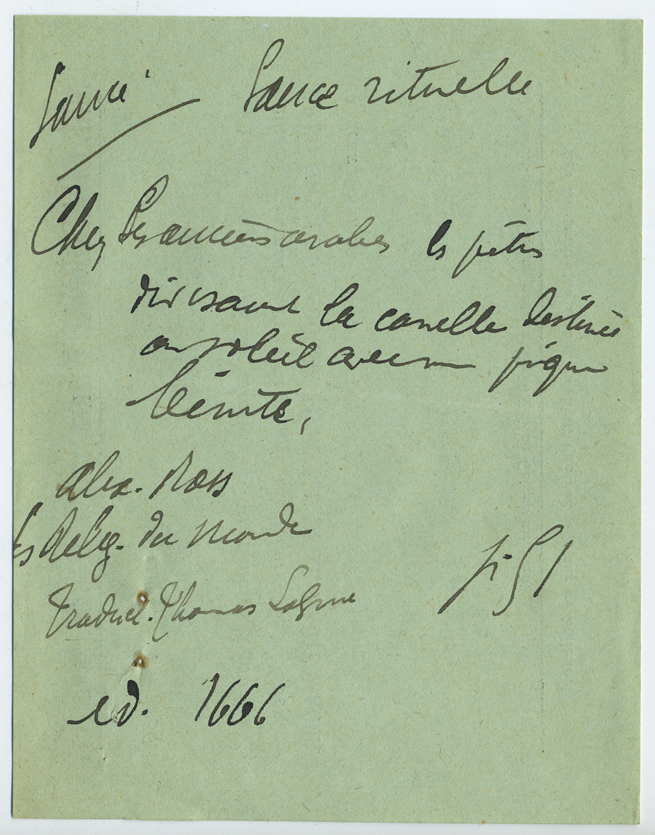 Lance rituelle
Chez les anciens arabes les prêtres
divisaient la canelle destinée
au soleil avec une pique
bénite,
Alex. Ross
les Relig. du Monde
Traduct. Thomas La Grue
p. 51
ed. 1666